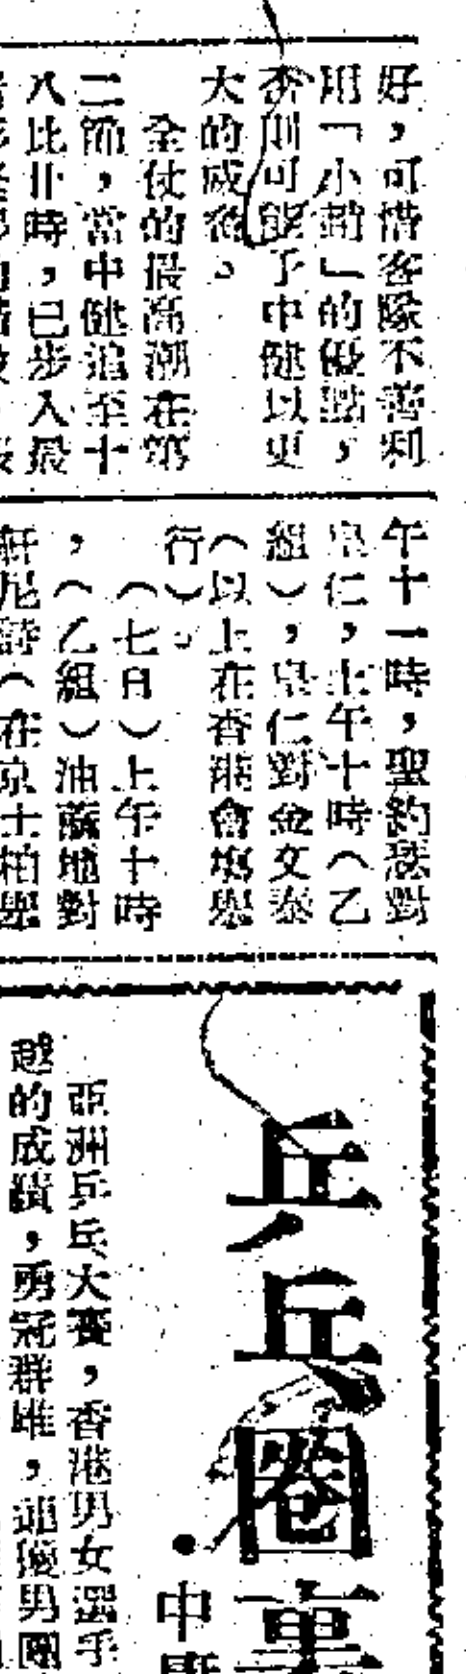 好，可惜客隊不善利
用「小韜」的優點，
否則可能予中健以更
大的威脅。
全仗的最高潮在第
二節，當中健追至十
八比廿時，已步入最
午十一時，聖約瑟對
皇仁，上午十時（乙
組），皇仁對金文泰
（以上在香港會塲舉
行）。
（七日）上午十時
，（乙組）油蔴地對
軒尼詩（在京士柏舉
乒乓圈裏
・中
亞洲乒乓大賽，香港男女選手
越的成績，勇冠群雄，連獲男團